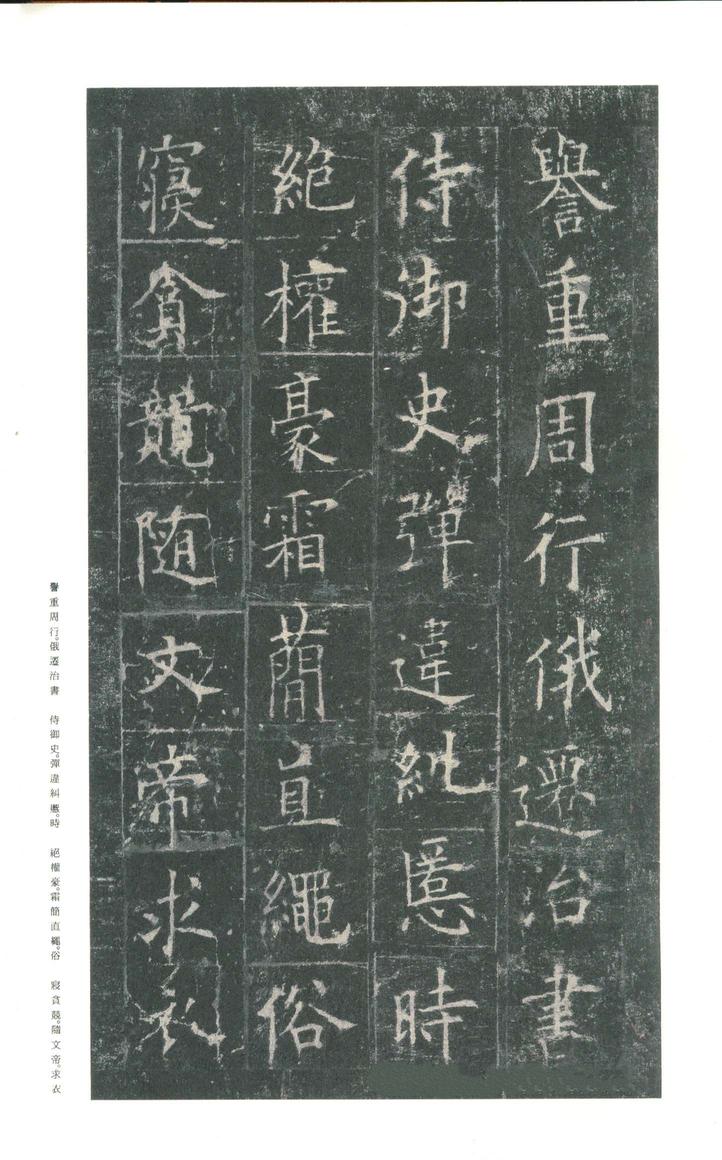 譽重周行俄遷治書
侍御史彈違糺慝時
絶權豪霜蕳直繩俗
寢貪競随文帝求衣
譽重周行。俄遷治書　侍御史。彈違糾慝。時　絕權豪。霜簡直繩。俗　寢貪競。隨文帝。求衣